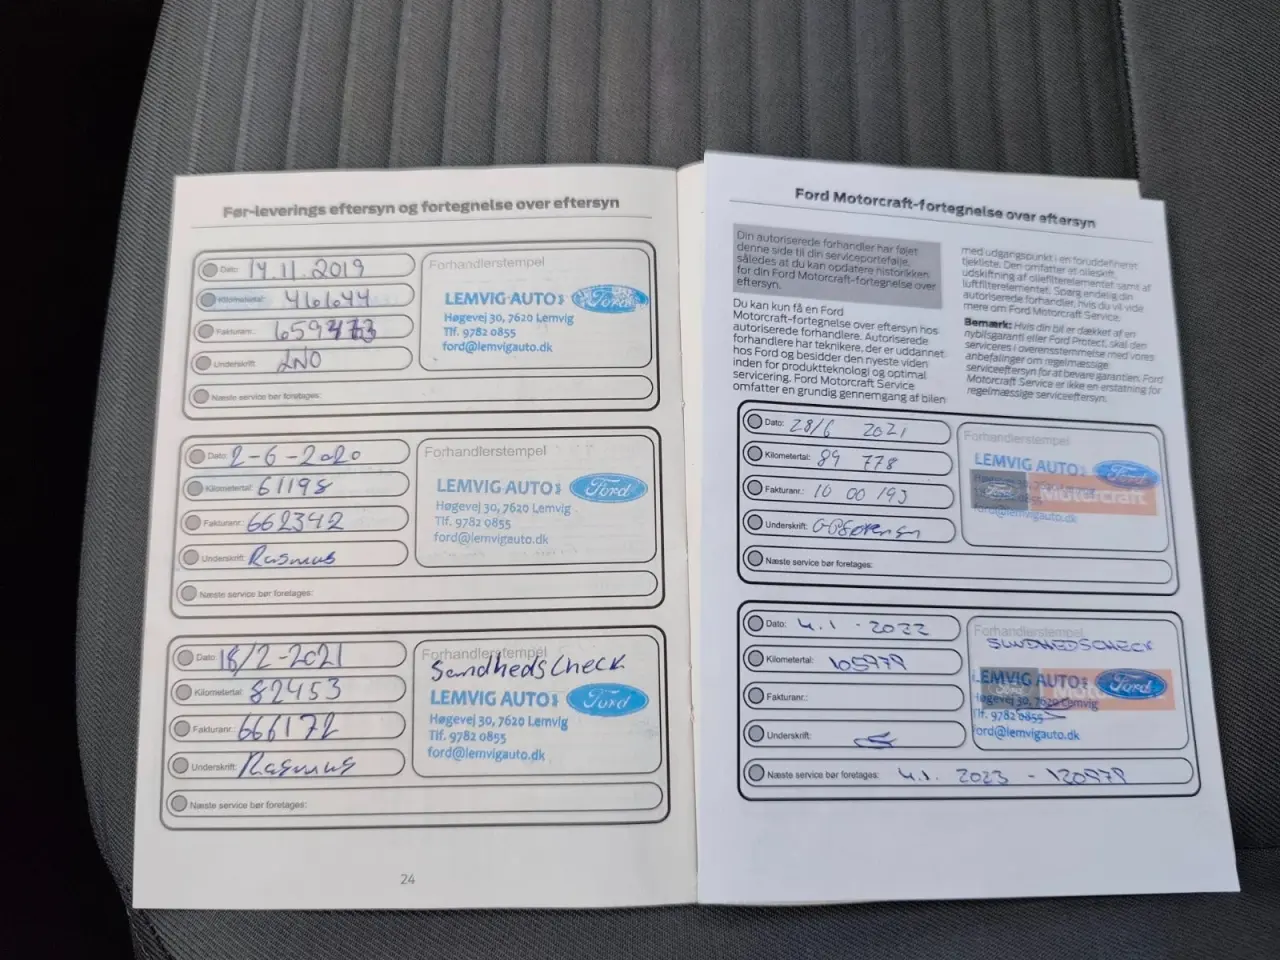 Før-leverings eftersyn og fortegnelse over eftersyn
Dato: 14.11.2019
Kilometertal: 46644
Fakturanr.: 659473
Underskrift: LNO
Næste service bør foretages:
Forhandlerstempel
LEMVIG AUTO A/S Ford
Høgevej 30, 7620 Lemvig
Tlf. 9782 0855
ford@lemvigauto.dk
Dato: 2-6-2020
Kilometertal: 61198
Fakturanr.: 662342
Underskrift: Rasmus
Næste service bør foretages:
Forhandlerstempel
LEMVIG AUTO A/S Ford
Høgevej 30, 7620 Lemvig
Tlf. 9782 0855
ford@lemvigauto.dk
Dato: 18/2-2021
Kilometertal: 82453
Fakturanr.: 666172
Underskrift: Rasmus
Næste service bør foretages:
Forhandlerstempel
Sundhedscheck
LEMVIG AUTO A/S Ford
Høgevej 30, 7620 Lemvig
Tlf. 9782 0855
ford@lemvigauto.dk
24
Ford Motorcraft-fortegnelse over eftersyn
Din autoriserede forhandler har føjet
denne side til din serviceportefølje,
således at du kan opdatere historikken
for din Ford Motorcraft-fortegnelse over
eftersyn.
Du kan kun få en Ford
Motorcraft-fortegnelse over eftersyn hos
autoriserede forhandlere. Autoriserede
forhandlere har teknikere, der er uddannet
hos Ford og besidder den nyeste viden
inden for produktteknologi og optimal
servicering. Ford Motorcraft Service
omfatter en grundig gennemgang af bilen
med udgangspunkt i en foruddefineret
tjekliste. Den omfatter et olieskift,
udskiftning af oliefilterelementet samt af
luftfilterelementet. Spørg endelig din
autoriserede forhandler, hvis du vil vide
mere om Ford Motorcraft Service.
Bemærk: Hvis din bil er dækket af en
nybilsgaranti eller Ford Protect, skal den
serviceres i overensstemmelse med vores
anbefalinger om regelmæssige
serviceeftersyn for at bevare garantien. Ford
Motorcraft Service er ikke en erstatning for
regelmæssige serviceeftersyn.
Dato: 28/6 2021
Kilometertal: 89 778
Fakturanr.: 10 00 193
Underskrift:
Næste service bør foretages:
Forhandlerstempel
LEMVIG AUTO A/S Ford
Ford Motorcraft
ford@lemvigauto.dk
Dato: 4.1-2022
Kilometertal: 105979
Fakturanr.:
Underskrift:
Næste service bør foretages: 4.1. 2023 - 120979
Forhandlerstempel
SUNDHEDSCHECK
LEMVIG AUTO A/S Ford
Høgevej 30, 7620 Lemvig
Tlf. 9782 0855
ford@lemvigauto.dk